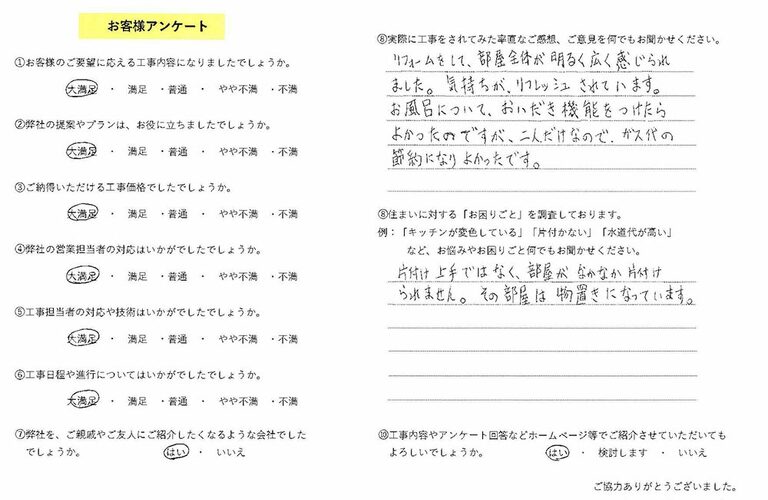 お客様アンケート
①お客様のご要望に応える工事内容になりましたでしょうか。
大満足 ・ 満足 ・普通 ・ やや不満 ・不満
②弊社の提案やプランは、お役に立ちましたでしょうか。
大満足 ・ 満足 ・普通 ・ やや不満 ・不満
③ご納得いただける工事価格でしたでしょうか。
大満足 ・ 満足 ・普通 ・ やや不満 ・不満
④弊社の営業担当者の対応はいかがでしたでしょうか。
大満足 ・ 満足 ・普通 ・ やや不満 ・不満
⑤工事担当者の対応や技術はいかがでしたでしょうか。
大満足 ・ 満足 ・普通 ・ やや不満 ・不満
⑥工事日程や進行についてはいかがでしたでしょうか。
大満足 ・ 満足 ・普通 ・ やや不満 ・不満
⑦弊社を、ご親戚やご友人にご紹介したくなるような会社でした
でしょうか。 はい ・ いいえ
⑧実際に工事をされてみた率直なご感想、ご意見を何でもお聞かせください。
リフォームをして、部屋全体が明るく広く感じられ
ました。気持ちが、リフレッシュされています。
お風呂について、おいだき機能をつけたら
よかったのですが、二人だけなので、ガス代の
節約になりよかったです。
⑨住まいに対する「お困りごと」を調査しております。
例：「キッチンが変色している」「片付かない」「水道代が高い」
など、お悩みやお困りごと何でもお聞かせください。
片付け上手ではなく、部屋がなかなか片付け
られません。その部屋は物置きになっています。
⑩工事内容やアンケート回答などホームページ等でご紹介させていただいても
よろしいでしょうか。 はい ・ 検討します ・ いいえ
ご協力ありがとうございました。